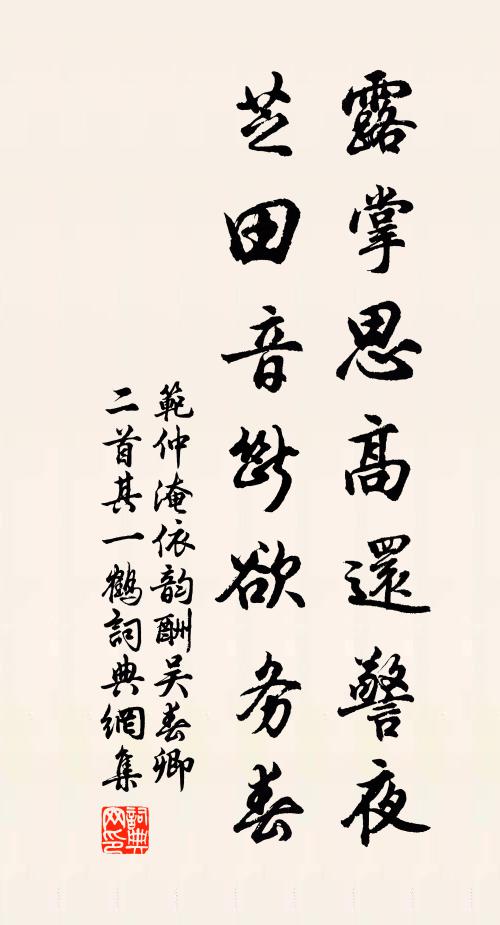 露掌思高還警夜
芝田音斷欲务春
範仲淹依韵酬吴春卿
二首其一鶴詞典網集
詞典
网印